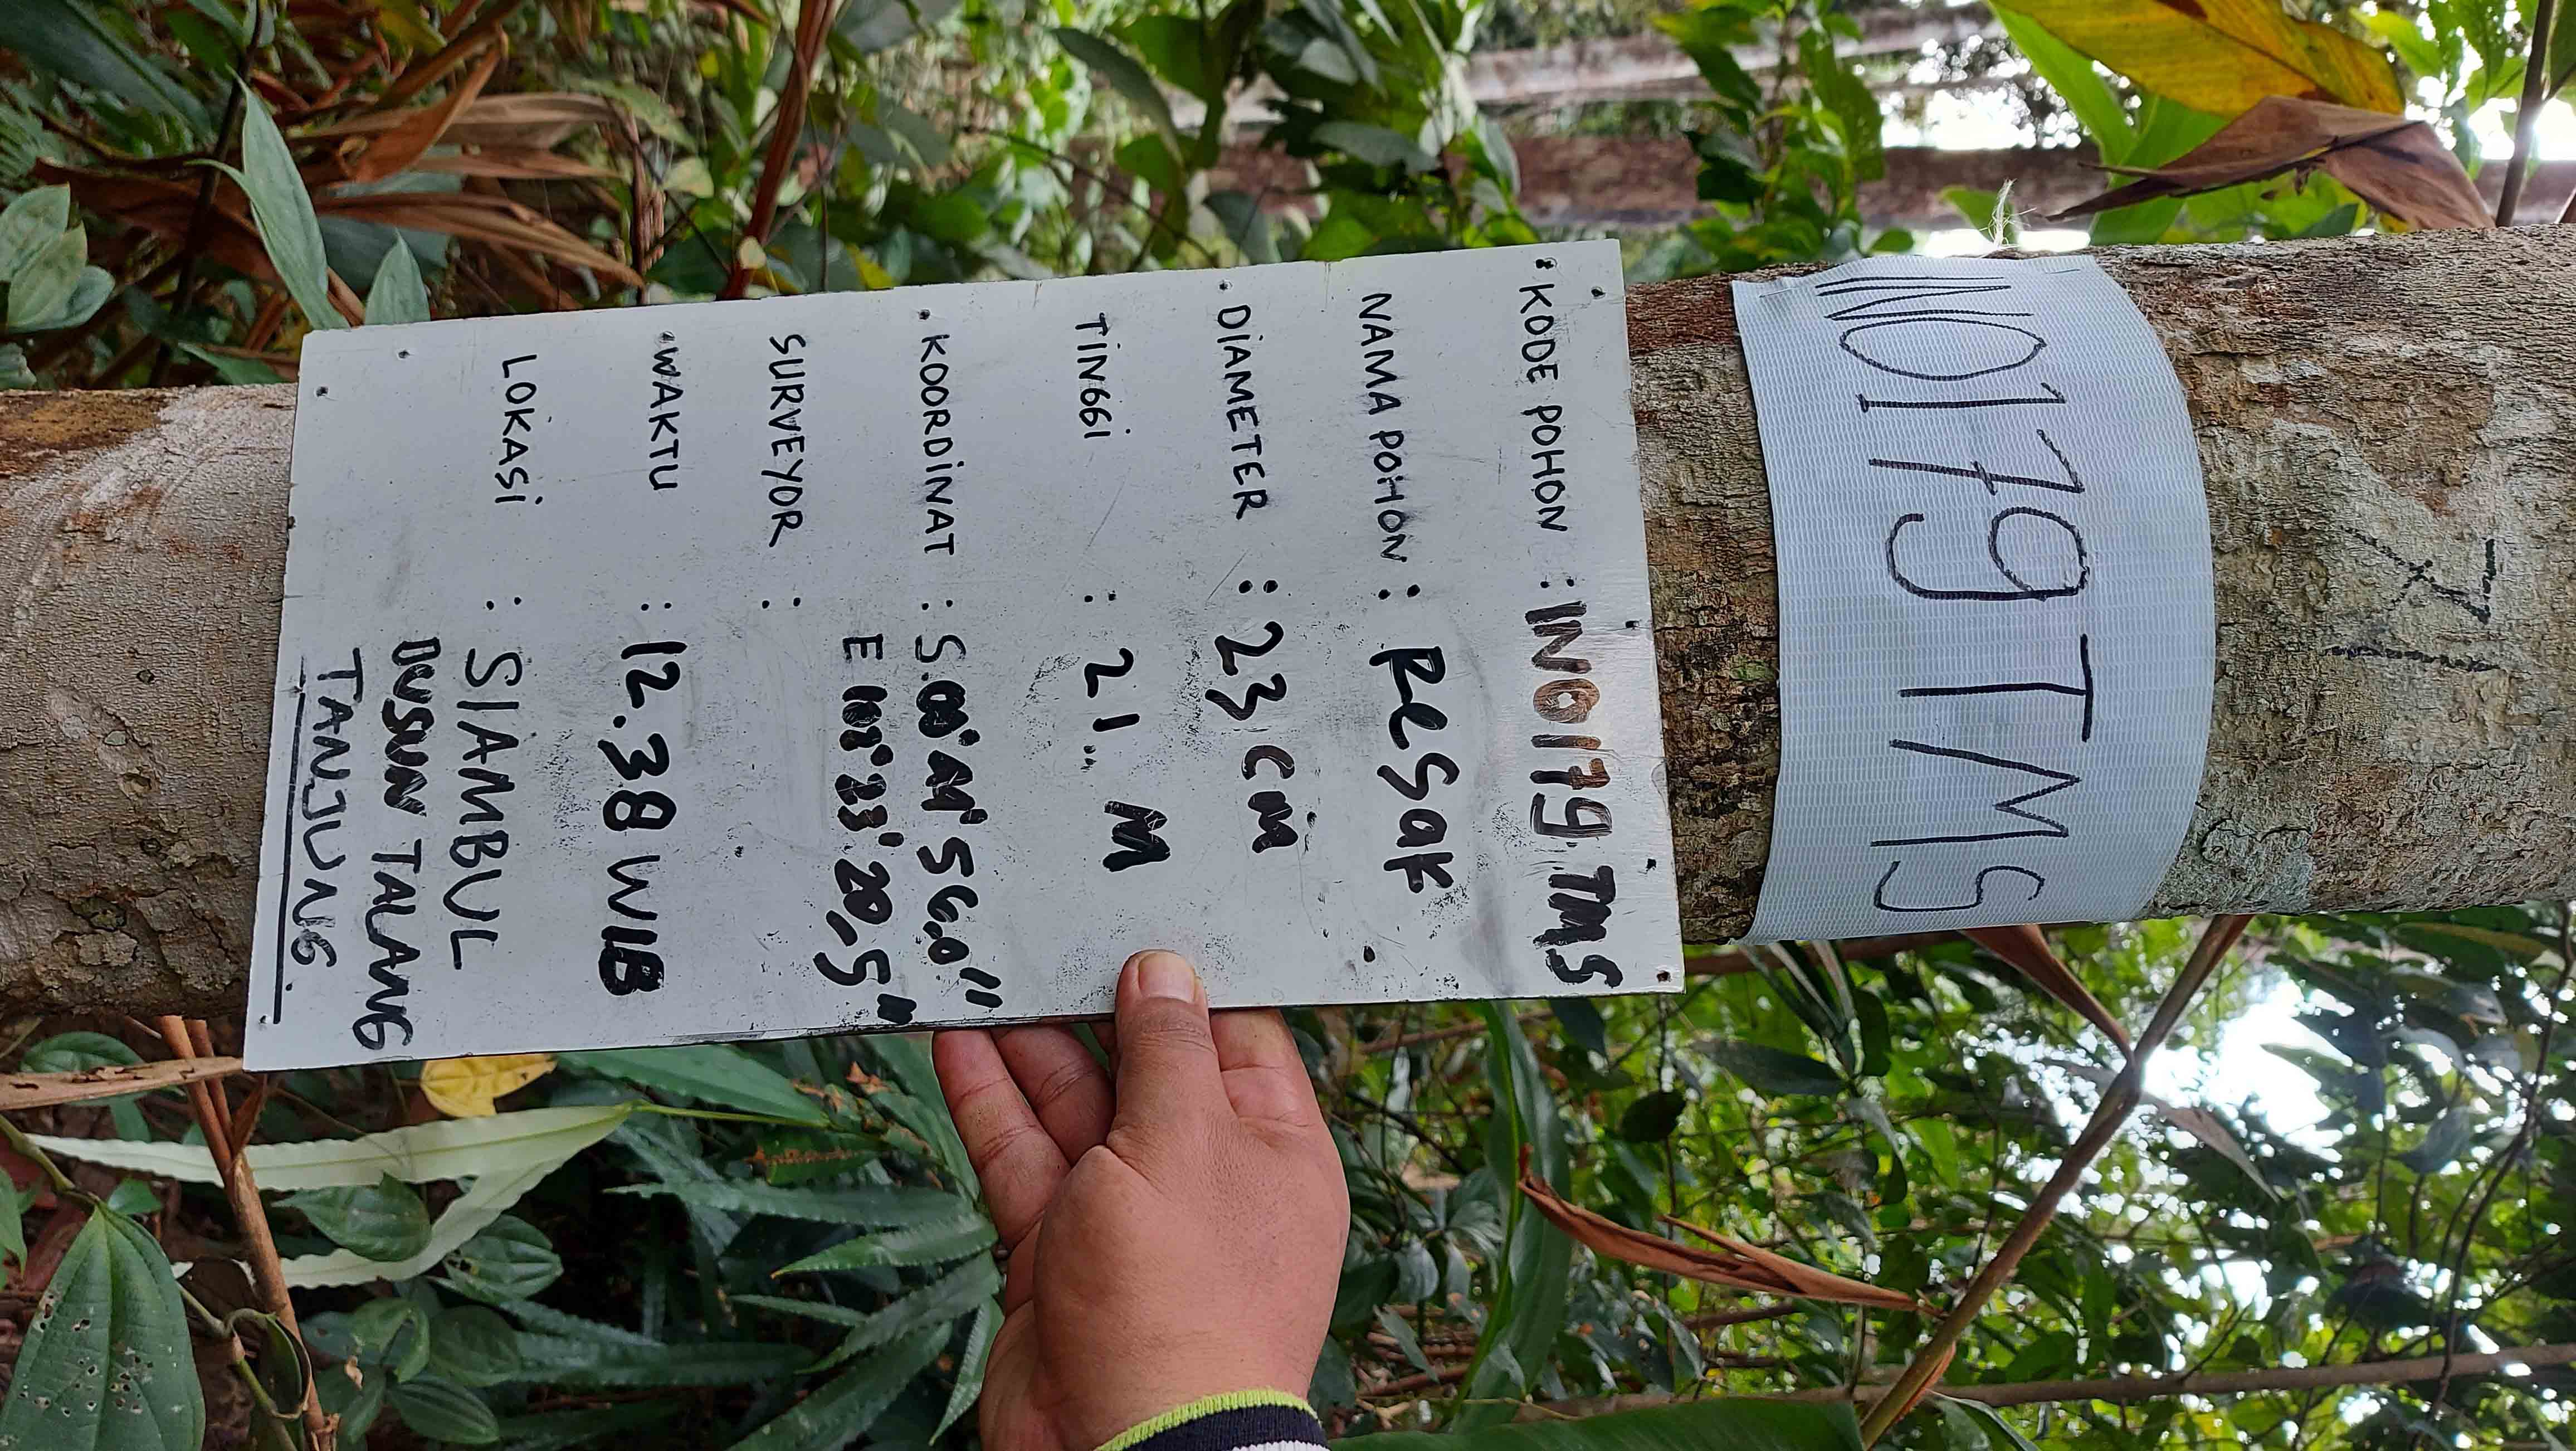 71
IN0179 TMS
KODE POHON : IN0179 TMS
NAMA POHON : Resak
DIAMETER : 23 CM
TINGGI : 21 M
KOORDINAT : S.00°49'56,0"
E 102°23'20,5"
SURVEYOR :
WAKTU : 12.38 WIB
LOKASI : SIAMBUL
DUSUN TALANG
TANJUNG.